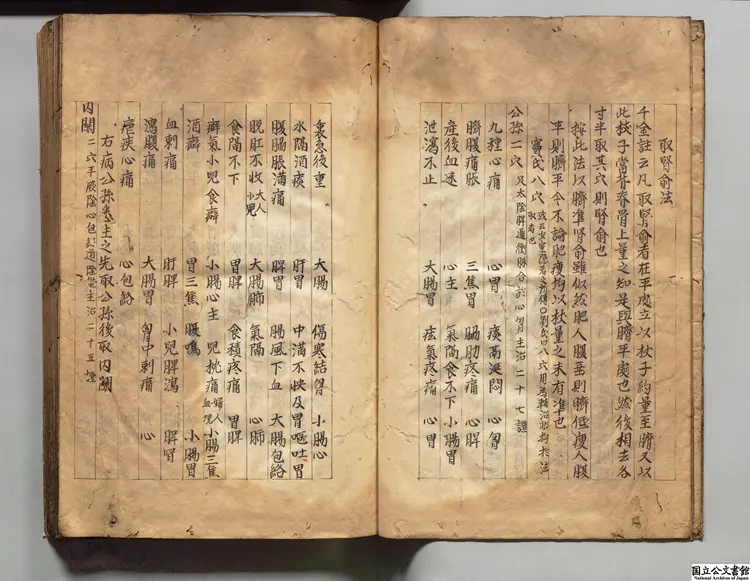 取腎俞法
千金註云凡取腎俞者在平處立以杖子約量至臍又以
此杖子當背脊骨上量之知是與臍平處也然後相去各
寸半取其穴則腎俞也
按此法以臍準腎俞雖似然肥人腹垂則臍低瘦人腹
平則臍平今不論肥瘦均以杖量之未有準也
竇氏八穴
公孫二穴 足太陰脾通衝脉合於心胷主治二十七證
九種心痛 心胃 痰膈涎悶 心胷
臍腹痛脹 三焦胃 脇肋疼痛 心脾
產後血迷 心主 氣隔食不下 小腸胃
泄瀉不止 大腸胃 痃氣疼痛 心胃
裏急後重 大腸 傷寒結胷 小腸心
水隔酒痰 肝胃 中滿不快及胃嘔吐 胃
腹腸脹滿痛 脾胃 腸風下血 大腸包絡
脫肛不收 大人小兒 大腸肺 氣隔 心肺
食隔不下 胃脾 食積疼痛 胃脾
癖氣小兒食癖 小腸心主 兒枕痛 婦人血塊 小腸三焦
酒癖 胃三焦 腸鳴 小腸胃
血刺痛 肝脾 小兒脾瀉 脾腎
瀉腹痛 大腸胃 胷中刺痛 心
瘧疾心痛 心包絡
右病公孫悉主之先取公孫後取內關
內關 二穴手厥陰心包絡通陰維主治二十五證
国立公文書館
National Archives of Japan